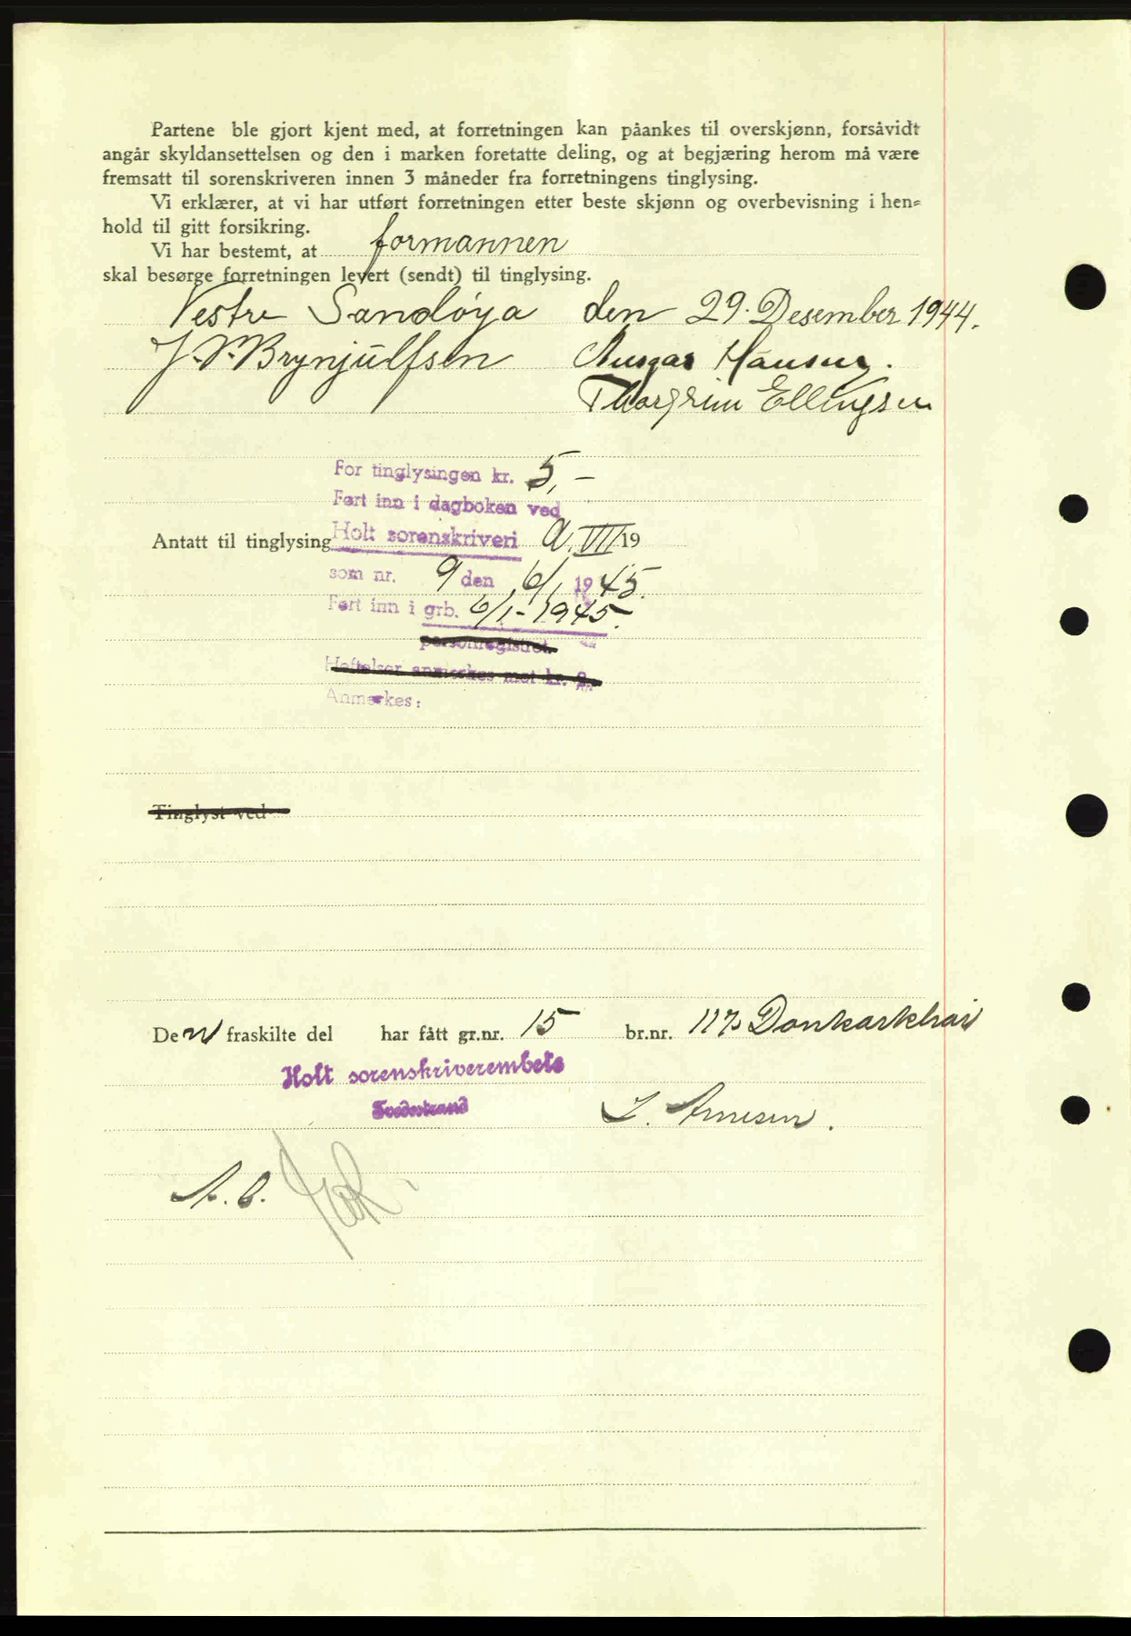 Partene ble gjort kjent med, at forretningen kan påankes til overskjønn, forsåvidt
angår skyldansettelsen og den i marken foretatte deling, og at begjæring herom må være
fremsatt til sorenskriveren innen 3 måneder fra forretningens tinglysing.
Vi erklærer, at vi har utført forretningen etter beste skjønn og overbevisning i hen=
hold til gitt forsikring.
Vi har bestemt, at formannen
skal besørge forretningen levert (sendt) til tinglysing.
Vestre Sandøya den 29. Desember 1944.
Brynjulfsen Ansgar Hansen.
Thorgrim Ellingsen
For tinglysingen kr. 5,-
Ført inn i dagboken ved
Antatt til tinglysing Holt sorenskriveri A. VII 19
som nr. 9 den 6/1 1945.
Ført inn i grb. 6/1-1945.
personregistret.
Heftelser anmerkes mot kr. 2.
Anmerkes:
Tinglyst ved
Den fraskilte del har fått gr.nr. 15 br.nr. 117
Holt sorenskriverembete
Tvedestrand
I. Arnesen.